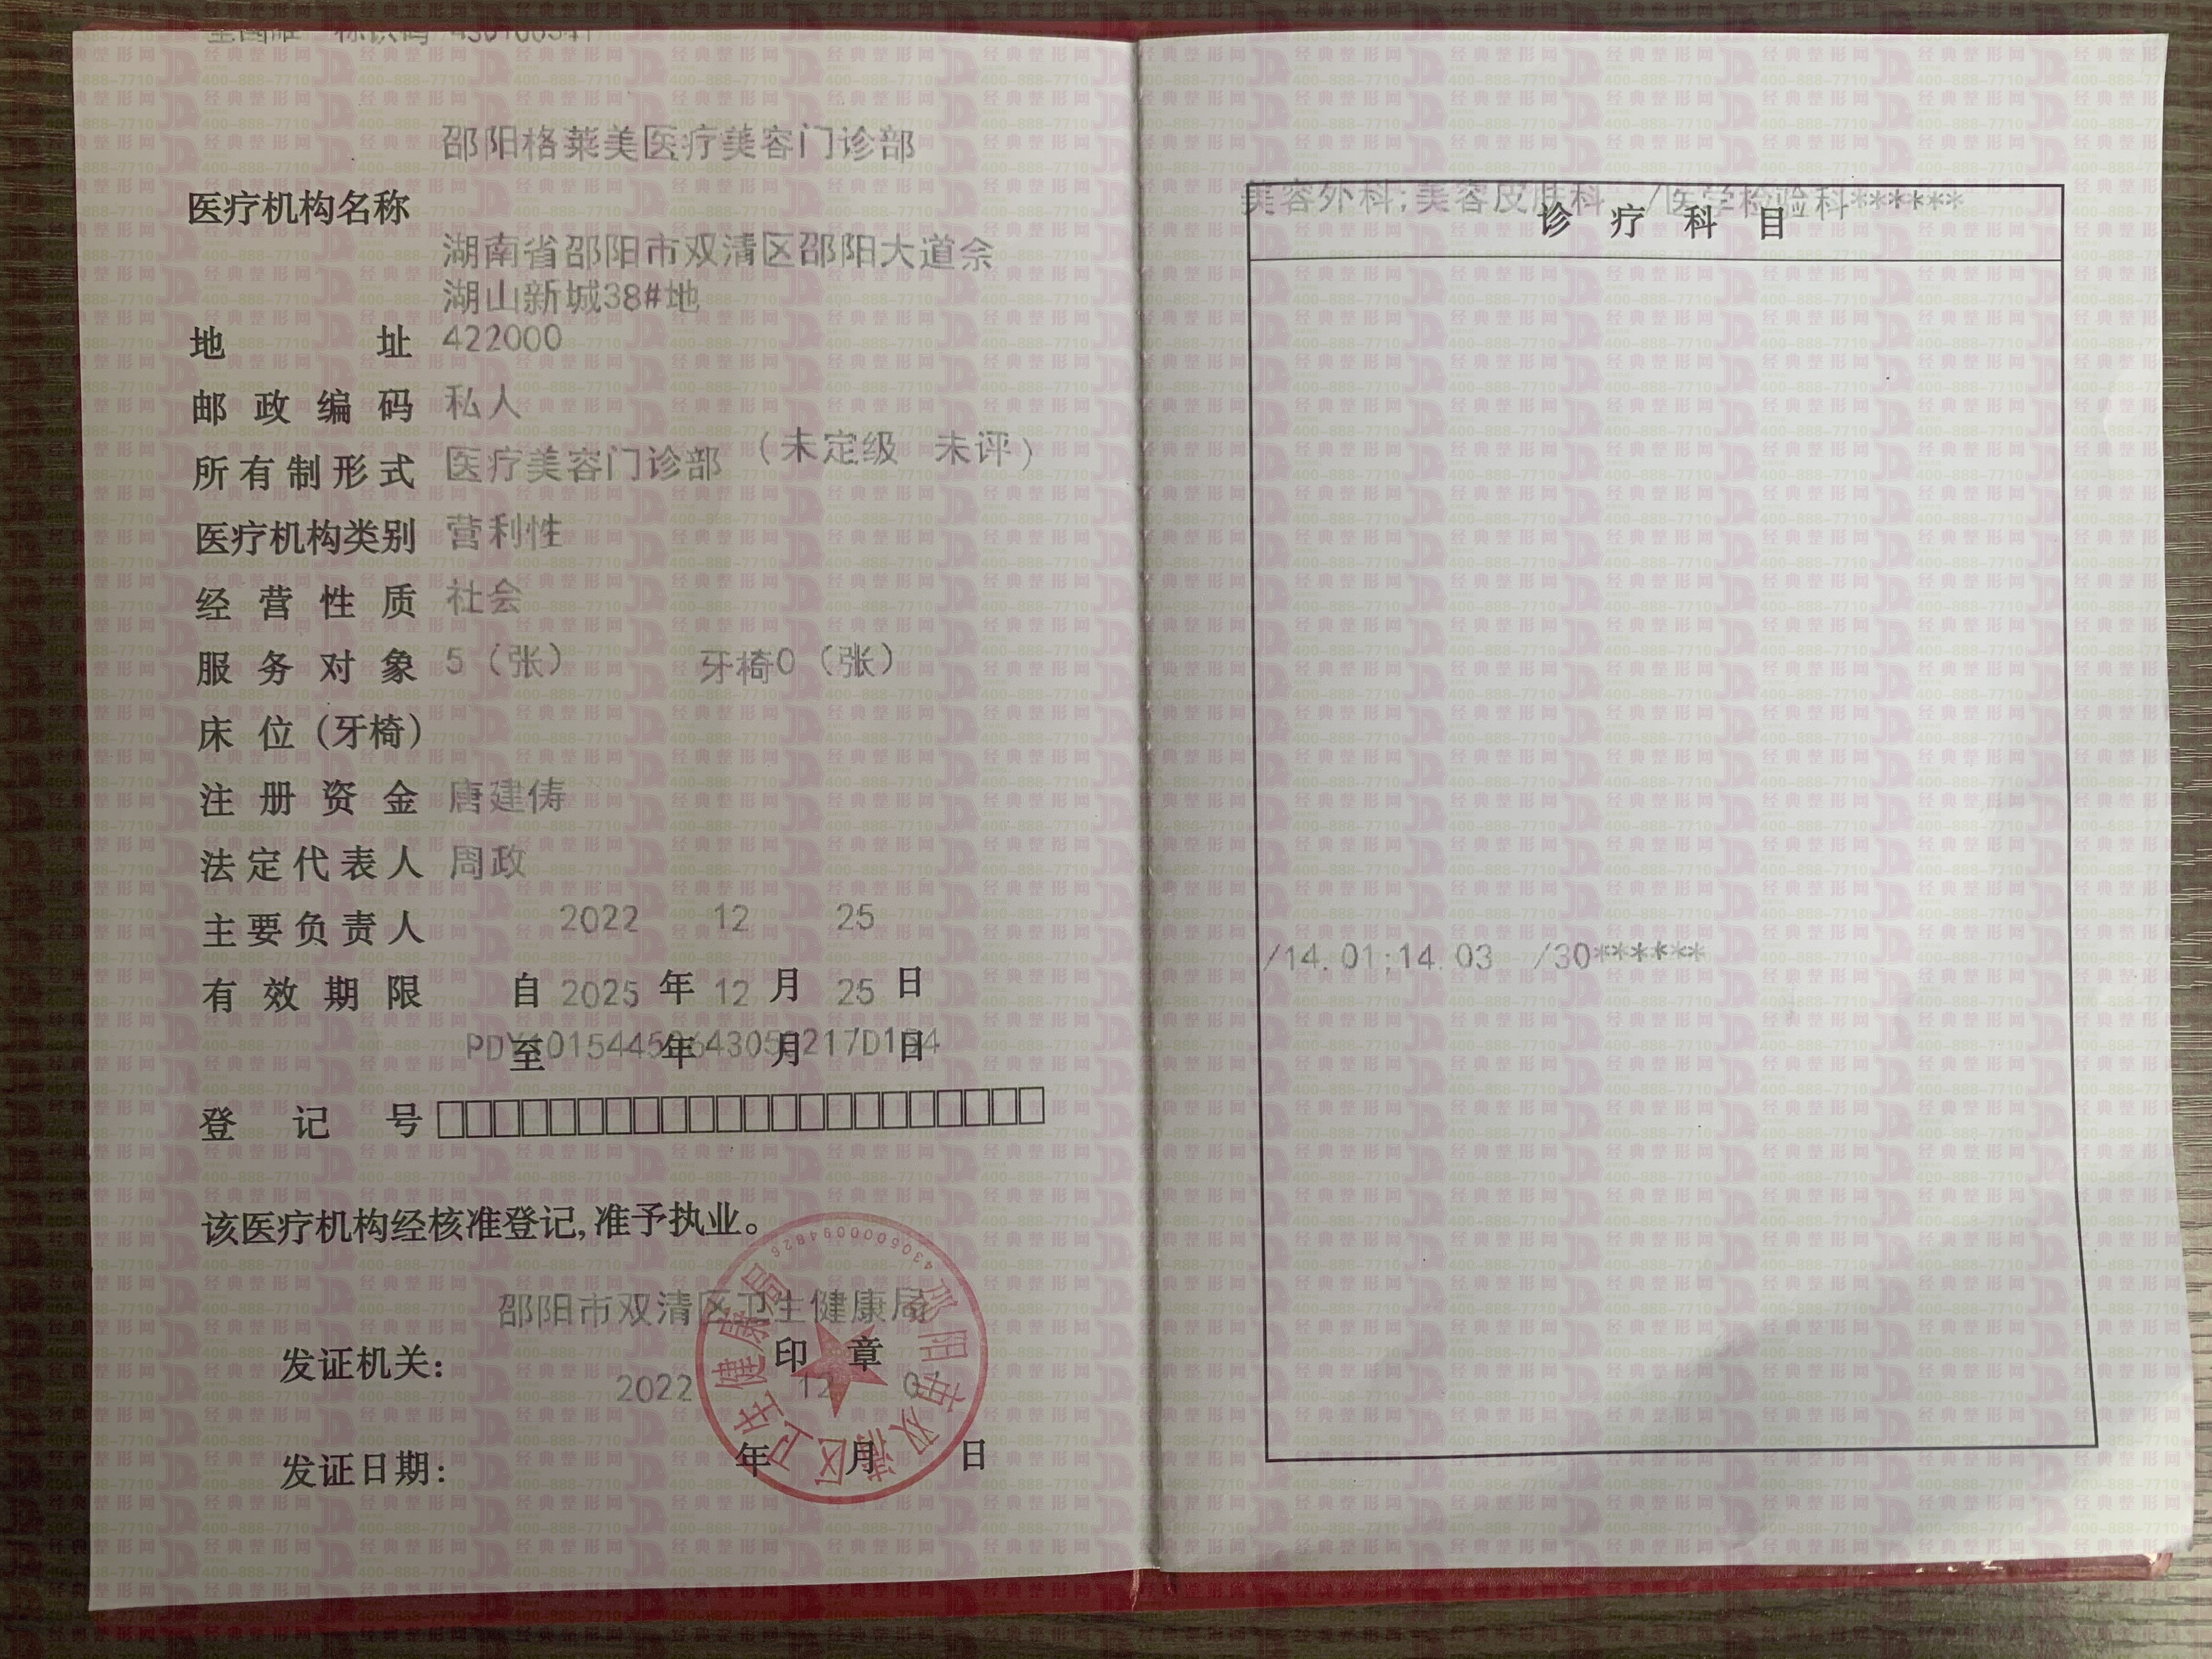 邵阳格莱美医疗美容门诊部
医疗机构名称
湖南省邵阳市双清区邵阳大道佘
湖山新城38#地
地 址 422000
邮政编码 私人
所有制形式 医疗美容门诊部 （未定级 未评）
医疗机构类别 营利性
经营性质 社会
服务对象 5（张） 牙椅0（张）
床位(牙椅)
注册资金 唐建俦
法定代表人 周政
主要负责人 2022 12 25
有效期限 自 2025 年 12 月 25 日
至 年 月 日
登记号
该医疗机构经核准登记,准予执业。
邵阳市双清区卫生健康局
发证机关: 印 章
2022 12
发证日期: 年 月 日
邵阳市双清区卫生健康局
4305000094826
美容外科;美容皮肤科 /医学检验科******
诊疗科目
/14.01;14.03 /30******
经典整形网
400-888-7710